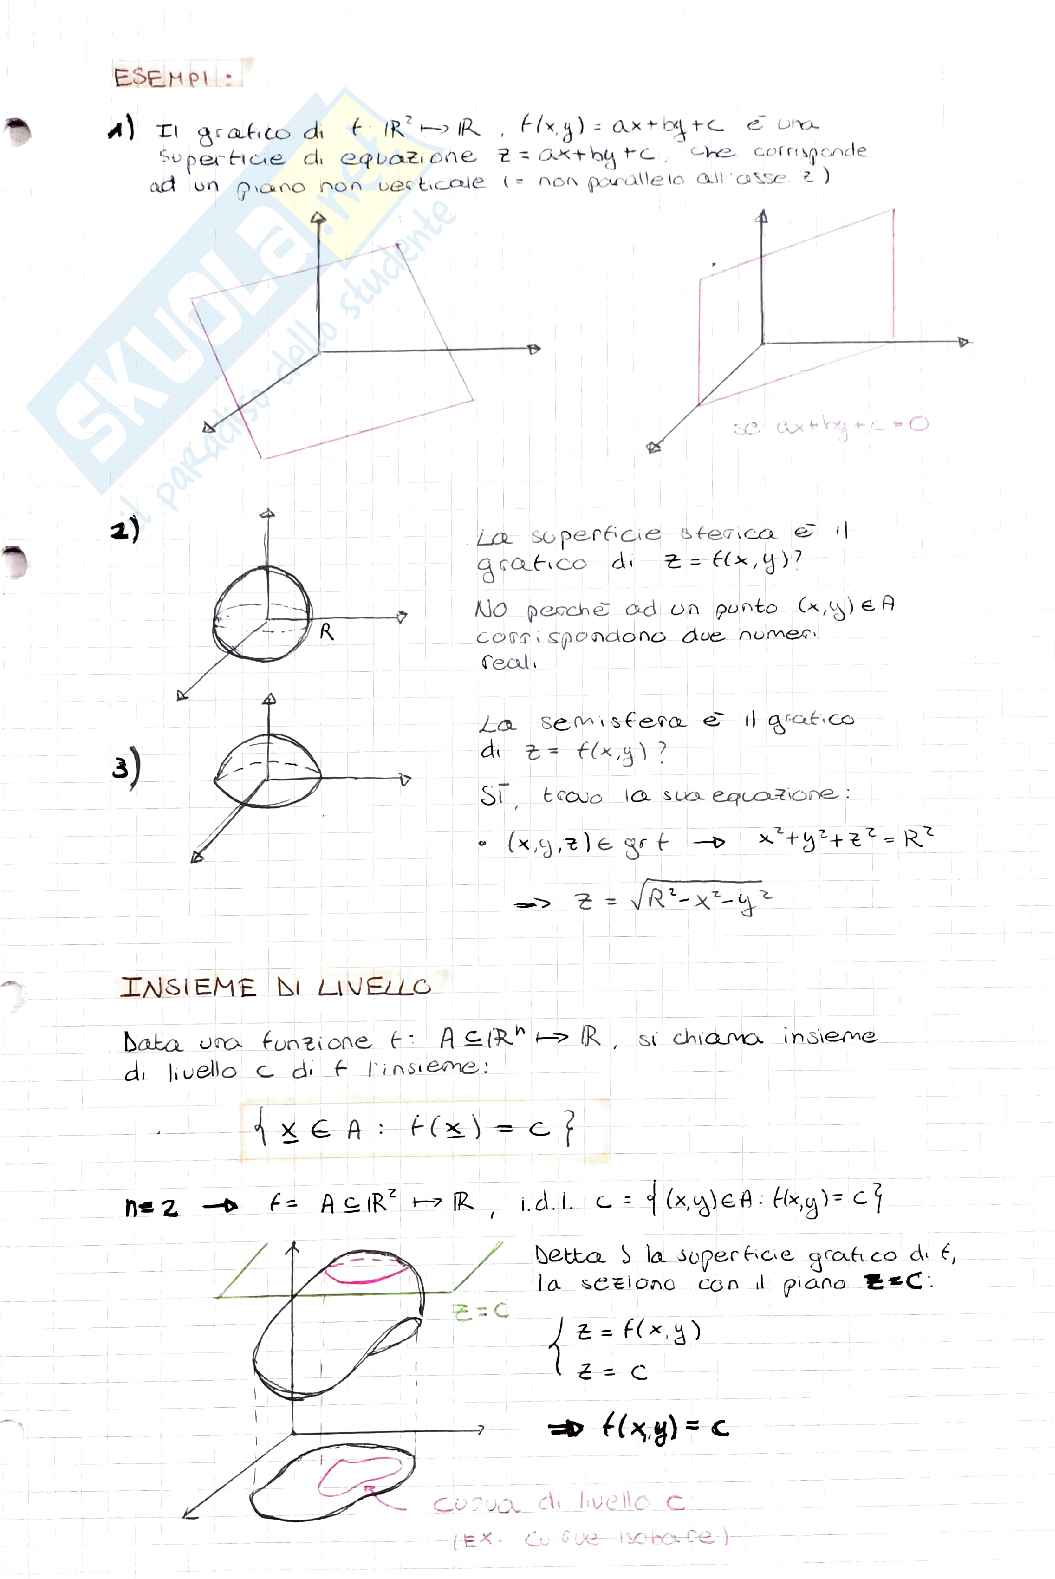 ESEMPI:
1) Il grafico di f: ℝ² ↦ ℝ, f(x,y) = ax+by+c è una
superficie di equazione z = ax+by+c, che corrisponde
ad un piano non verticale (= non parallelo all'asse z)
SKUOLA.net
il paradiso dello studente
se ax+by+c=0
2)
R
La superficie sferica è il
grafico di z = f(x,y)?
No perchè ad un punto (x,y) ∈ A
corrispondono due numeri
reali.
3)
La semisfera è il grafico
di z = f(x,y)?
SÌ, trovo la sua equazione:
• (x,y,z) ∈ gr f → x²+y²+z² = R²
=> z = √(R²-x²-y²)
INSIEME DI LIVELLO
Data una funzione f: A ⊆ ℝⁿ ↦ ℝ, si chiama insieme
di livello c di f l'insieme:
{ x ∈ A : f(x) = c }
n=2 → f= A ⊆ ℝ² ↦ ℝ, i.d.l. c = {(x,y) ∈ A : f(x,y) = c}
z=c
Detta S la superficie grafico di f,
la seziono con il piano z=c:
{ z = f(x,y)
z = c
=> f(x,y) = c
curva di livello c
(EX. curve isobare)